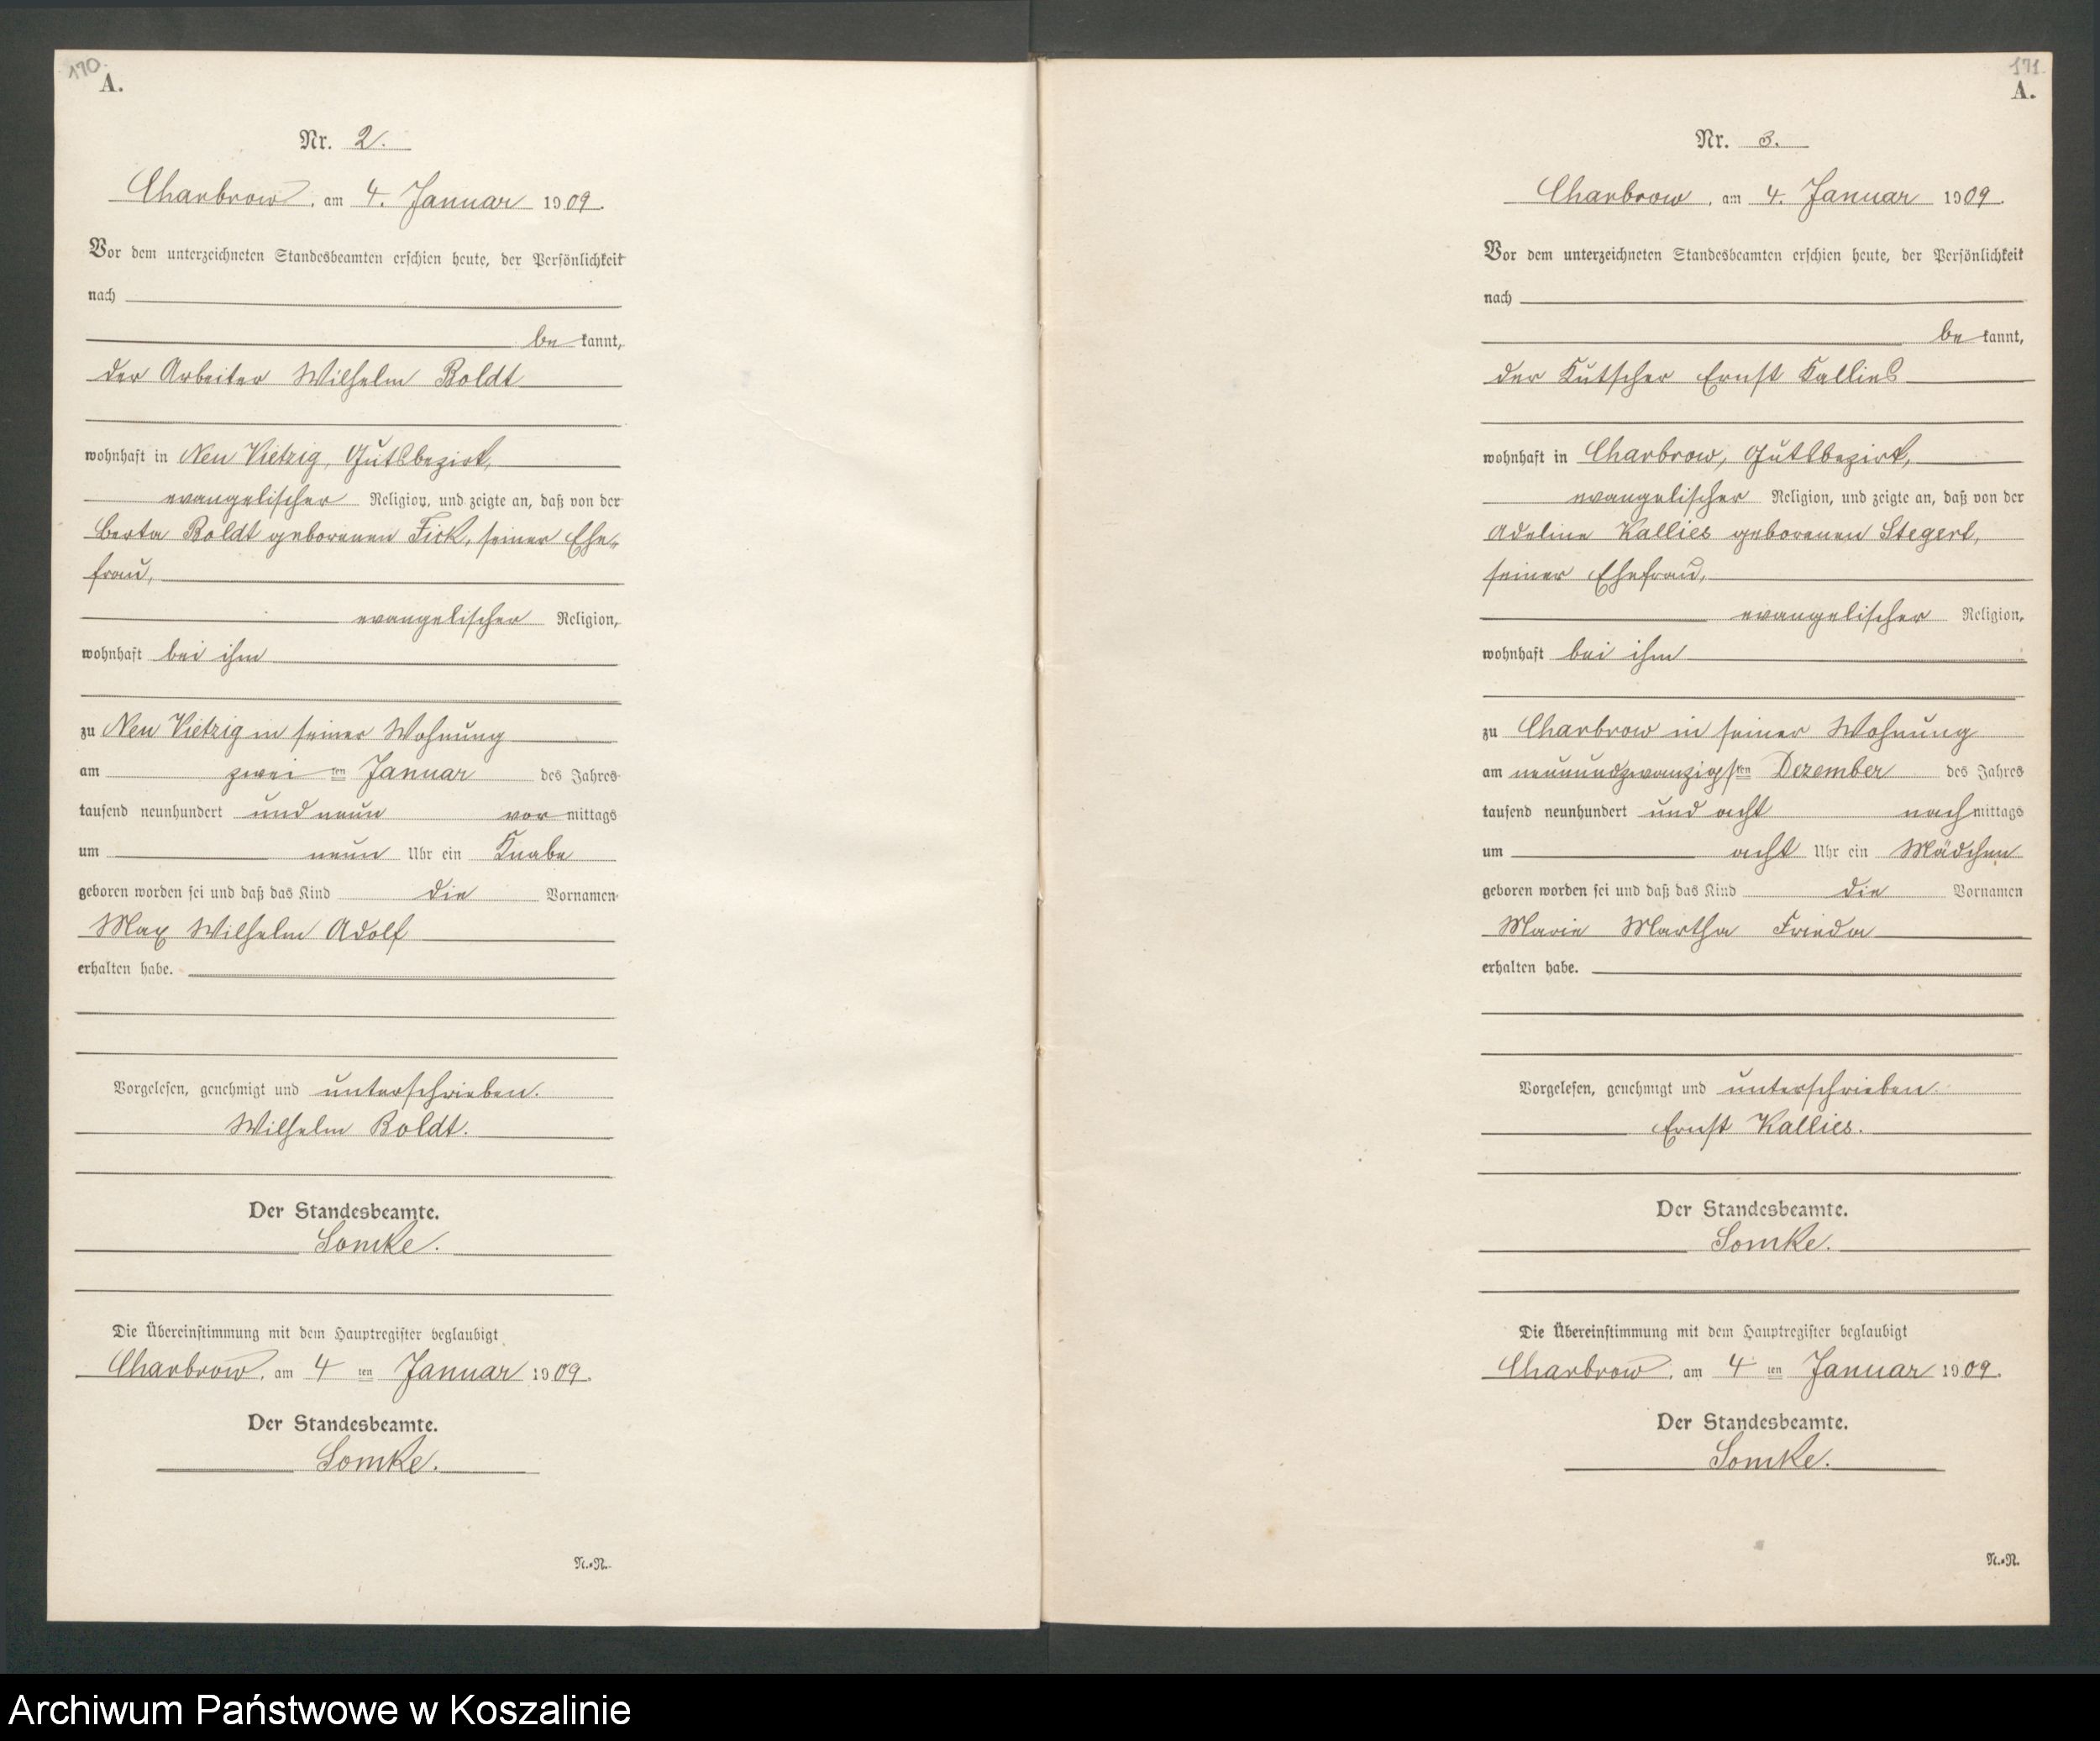 170.
A.
Nr. 2.
Charbrow, am 4. Januar 1909.
Vor dem unterzeichneten Standesbeamten erschien heute, der Persönlichkeit
nach
be kannt,
der Arbeiter Wilhelm Boldt
wohnhaft in Neu Vietzig, Gutsbezirk,
evangelischer Religion, und zeigte an, daß von der
Berta Boldt geborenen Fick, seiner Ehe-
frau,
evangelischer Religion,
wohnhaft bei ihm
zu Neu Vietzig in seiner Wohnung
am zwei ten Januar des Jahres
tausend neunhundert und neun vor mittags
um neun Uhr ein Knabe
geboren worden sei und daß das Kind die Vornamen
Max Wilhelm Adolf
erhalten habe.
Vorgelesen, genehmigt und unterschrieben.
Wilhelm Boldt.
Der Standesbeamte.
Somke.
Die Übereinstimmung mit dem Hauptregister beglaubigt
Charbrow, am 4 ten Januar 1909.
Der Standesbeamte.
Somke.
N.=R.
171.
A.
Nr. 3.
Charbrow, am 4. Januar 1909.
Vor dem unterzeichneten Standesbeamten erschien heute, der Persönlichkeit
nach
be kannt,
der Kutscher Ernst Kallies
wohnhaft in Charbrow, Gutsbezirk,
evangelischer Religion, und zeigte an, daß von der
Adeline Kallies geborenen Stegert,
seiner Ehefrau,
evangelischer Religion,
wohnhaft bei ihm
zu Charbrow in seiner Wohnung
am neunundzwanzigsten Dezember des Jahres
tausend neunhundert und acht nach mittags
um acht Uhr ein Mädchen
geboren worden sei und daß das Kind die Vornamen
Marie Martha Frieda
erhalten habe.
Vorgelesen, genehmigt und unterschrieben.
Ernst Kallies.
Der Standesbeamte.
Somke.
Die Übereinstimmung mit dem Hauptregister beglaubigt
Charbrow, am 4 ten Januar 1909.
Der Standesbeamte.
Somke.
N.=R.
Archiwum Państwowe w Koszalinie